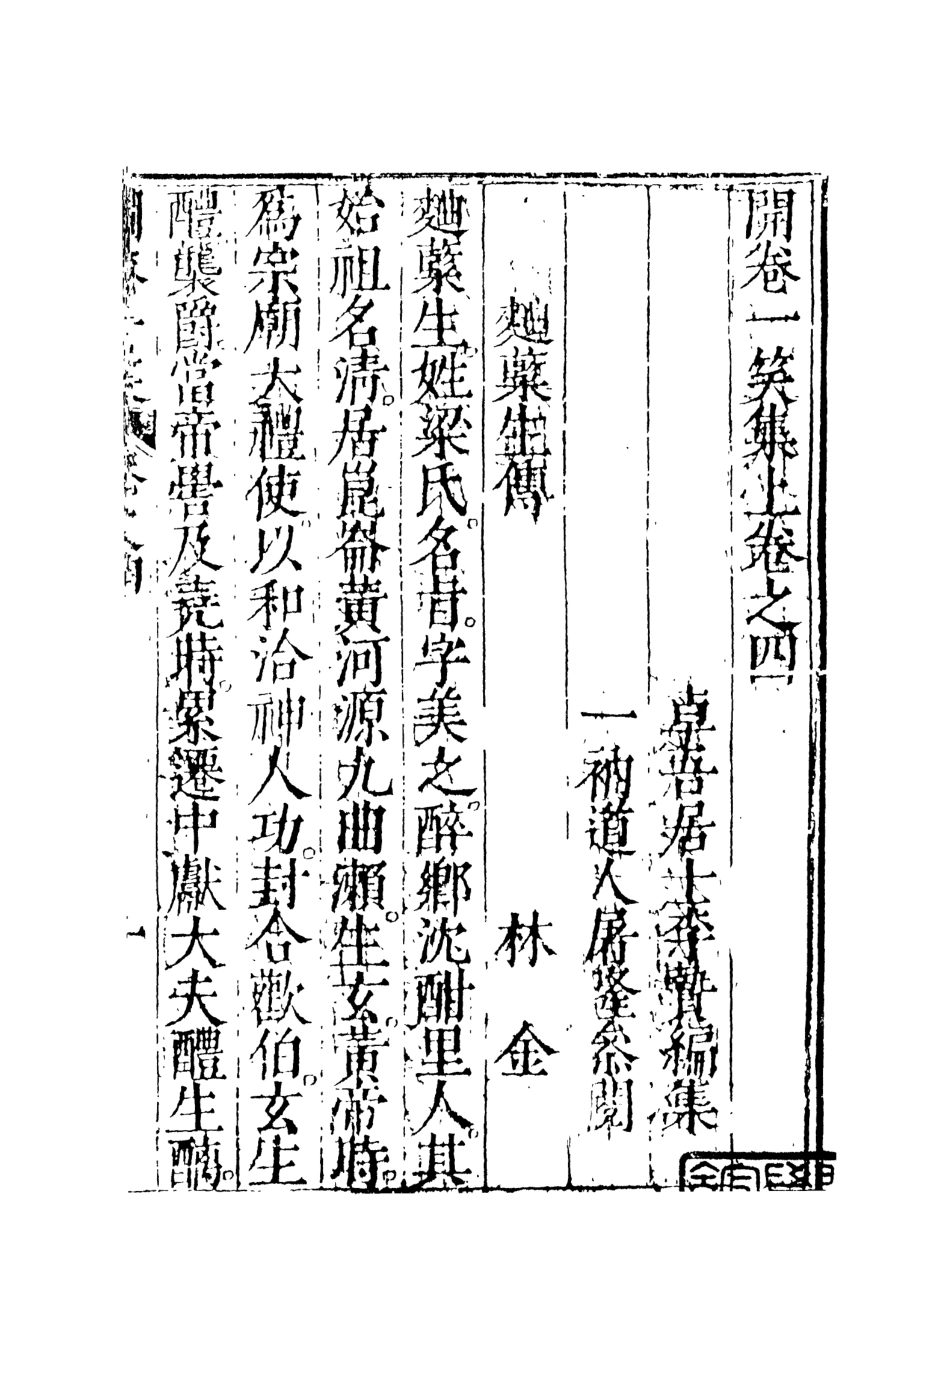 開卷一笑集上卷之四
卓吾居士李贄編集
一衲道人屠隆叅閱
麯糵生傳 林金
麯糵生姓梁氏名旨字美之醉鄉沈酣里人其
始祖名清居崑崙黃河源九曲瀨生玄黃帝時
爲宗廟大禮使以和洽神人功封合歡伯玄生
醴襲爵當帝嚳及堯時累遷中獻大夫醴生醹